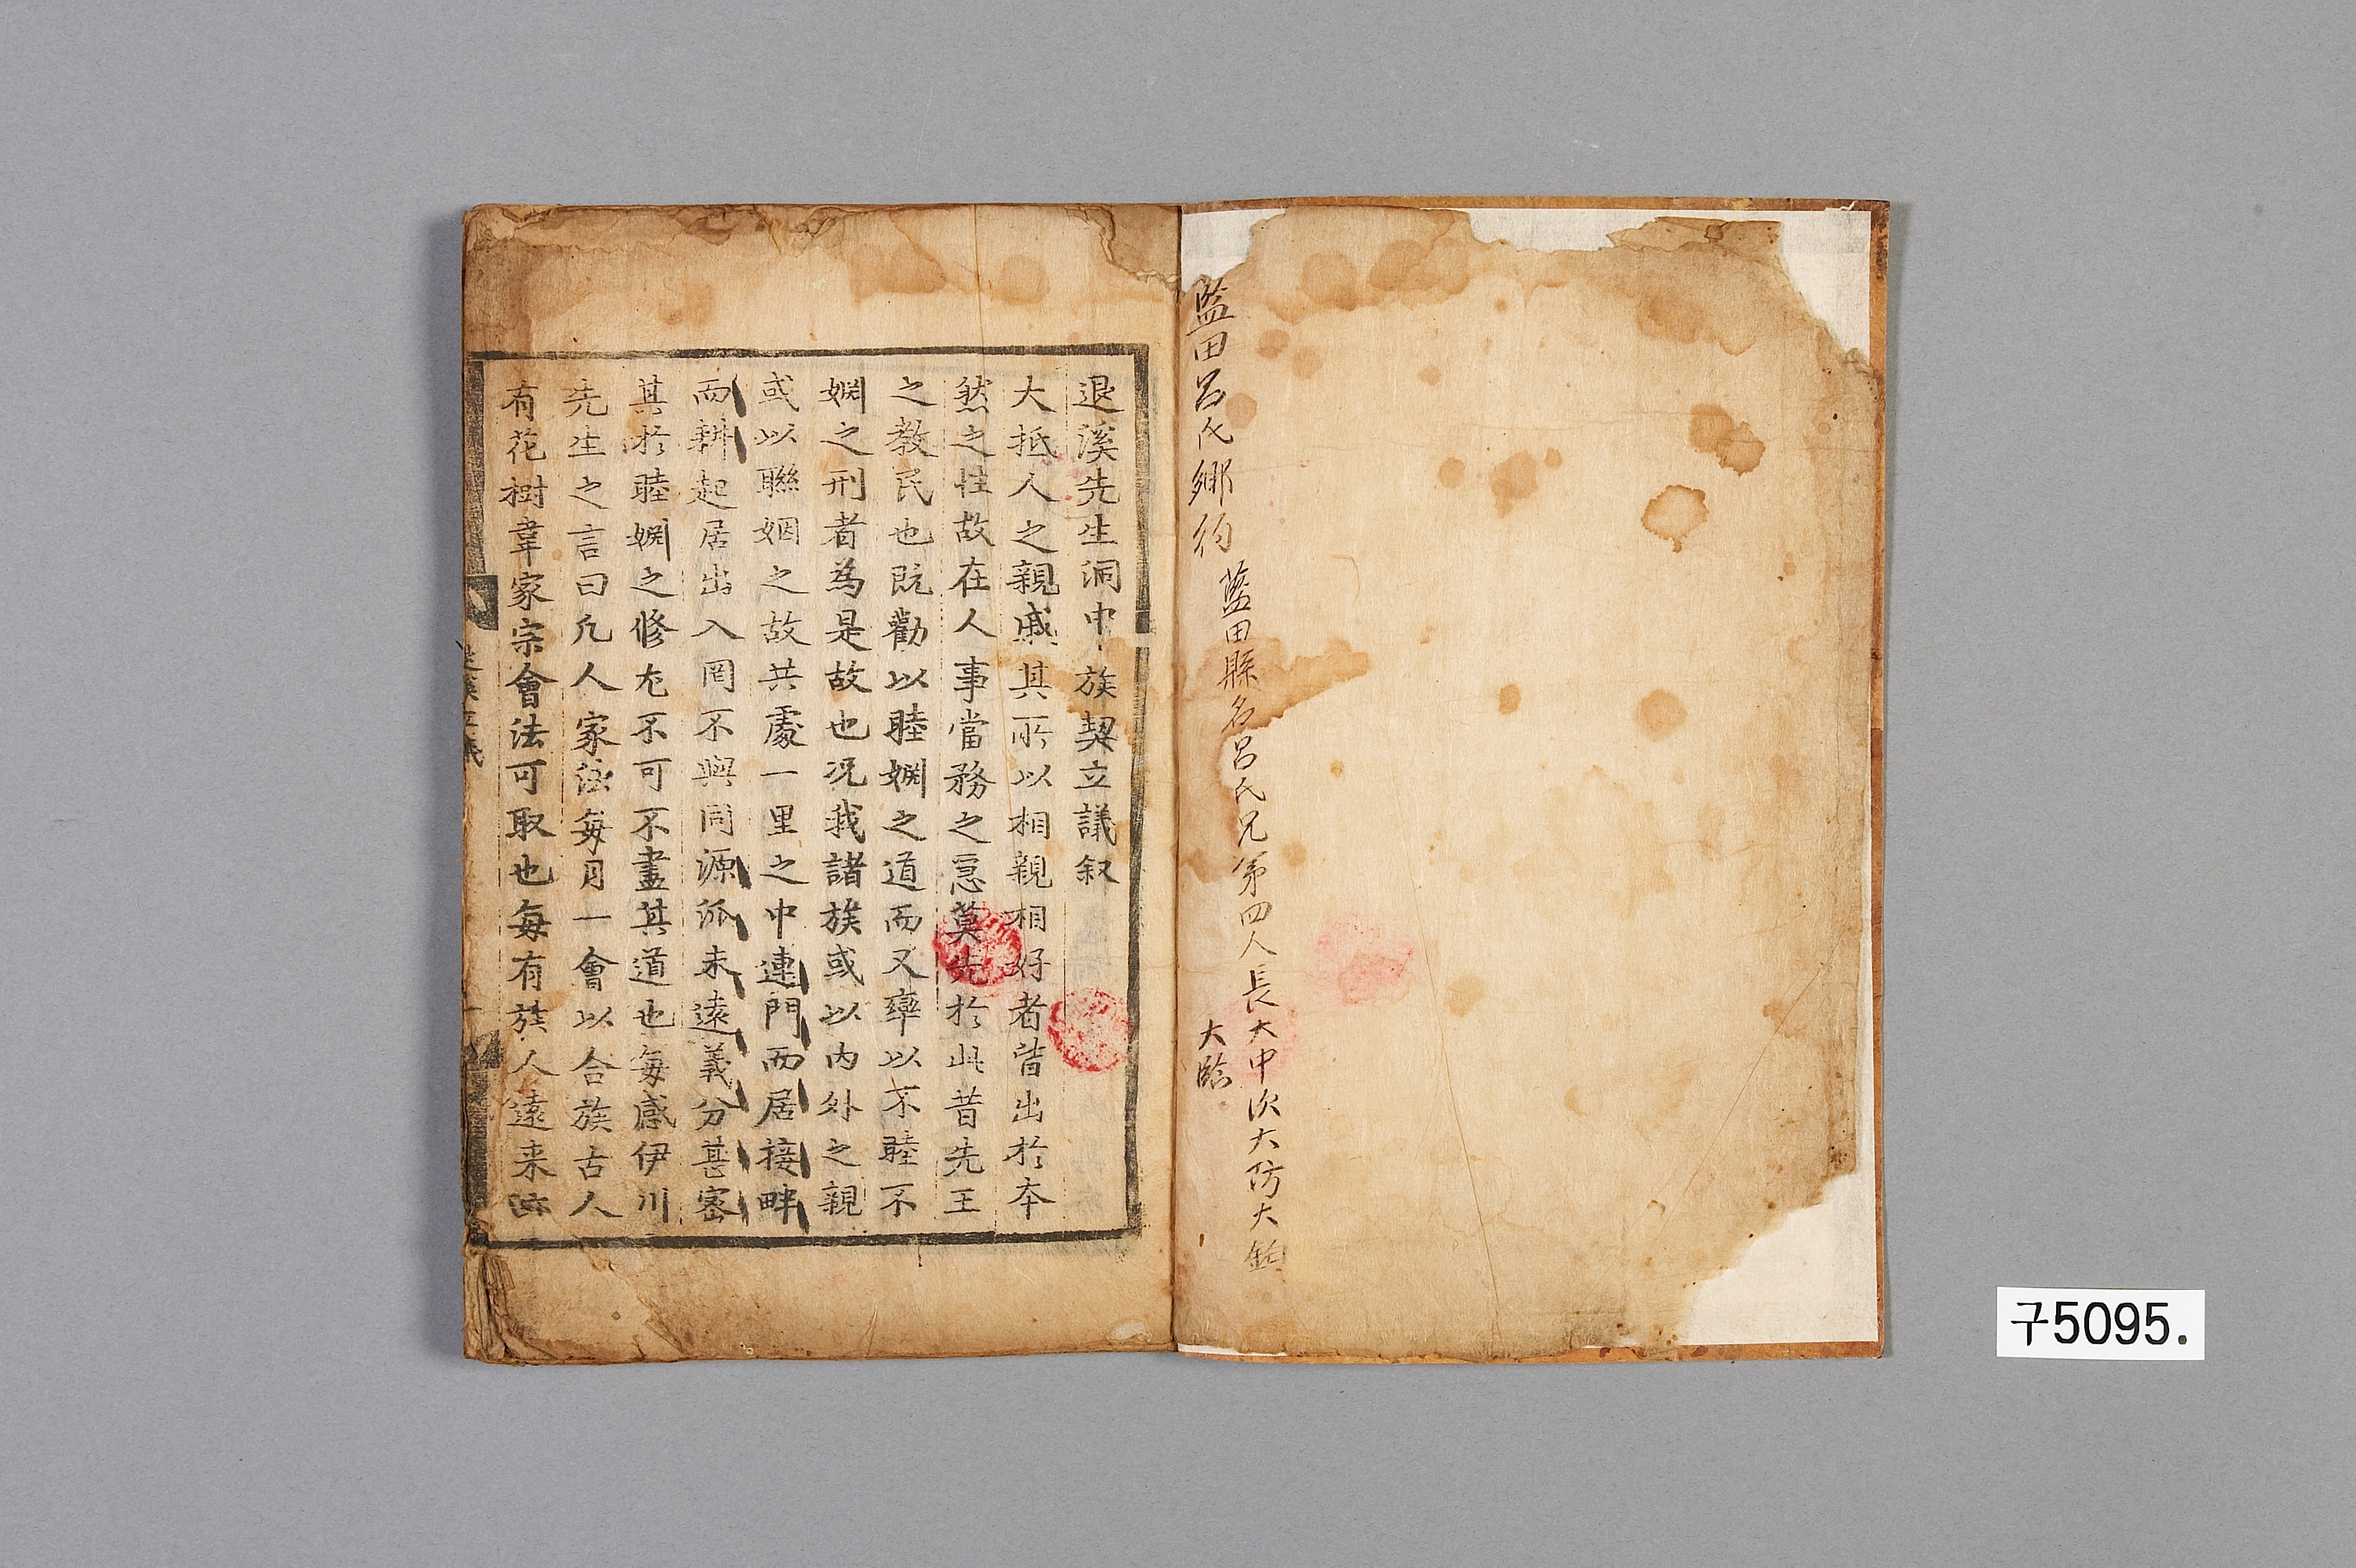 藍田呂氏鄕約
藍田縣名呂氏兄弟四人長大中次大防大鈞
大臨
退溪先生洞中族契立議叙
大抵人之親戚其所以相親相好者皆出於本
然之性故在人事當務之急莫先於此昔先王
之教民也既勸以睦婣之道而又率以不睦不
婣之刑者為是故也况我諸族或以内外之親
或以聯姻之故共處一里之中連門而居接畔
而耕起居出入罔不與同源派未遠義分甚密
其於睦婣之修尤不可不盡其道也每感伊川
先生之言曰凡人家法每月一會以合族古人
有花樹韋家宗會法可取也每有族人遠来
구5095.